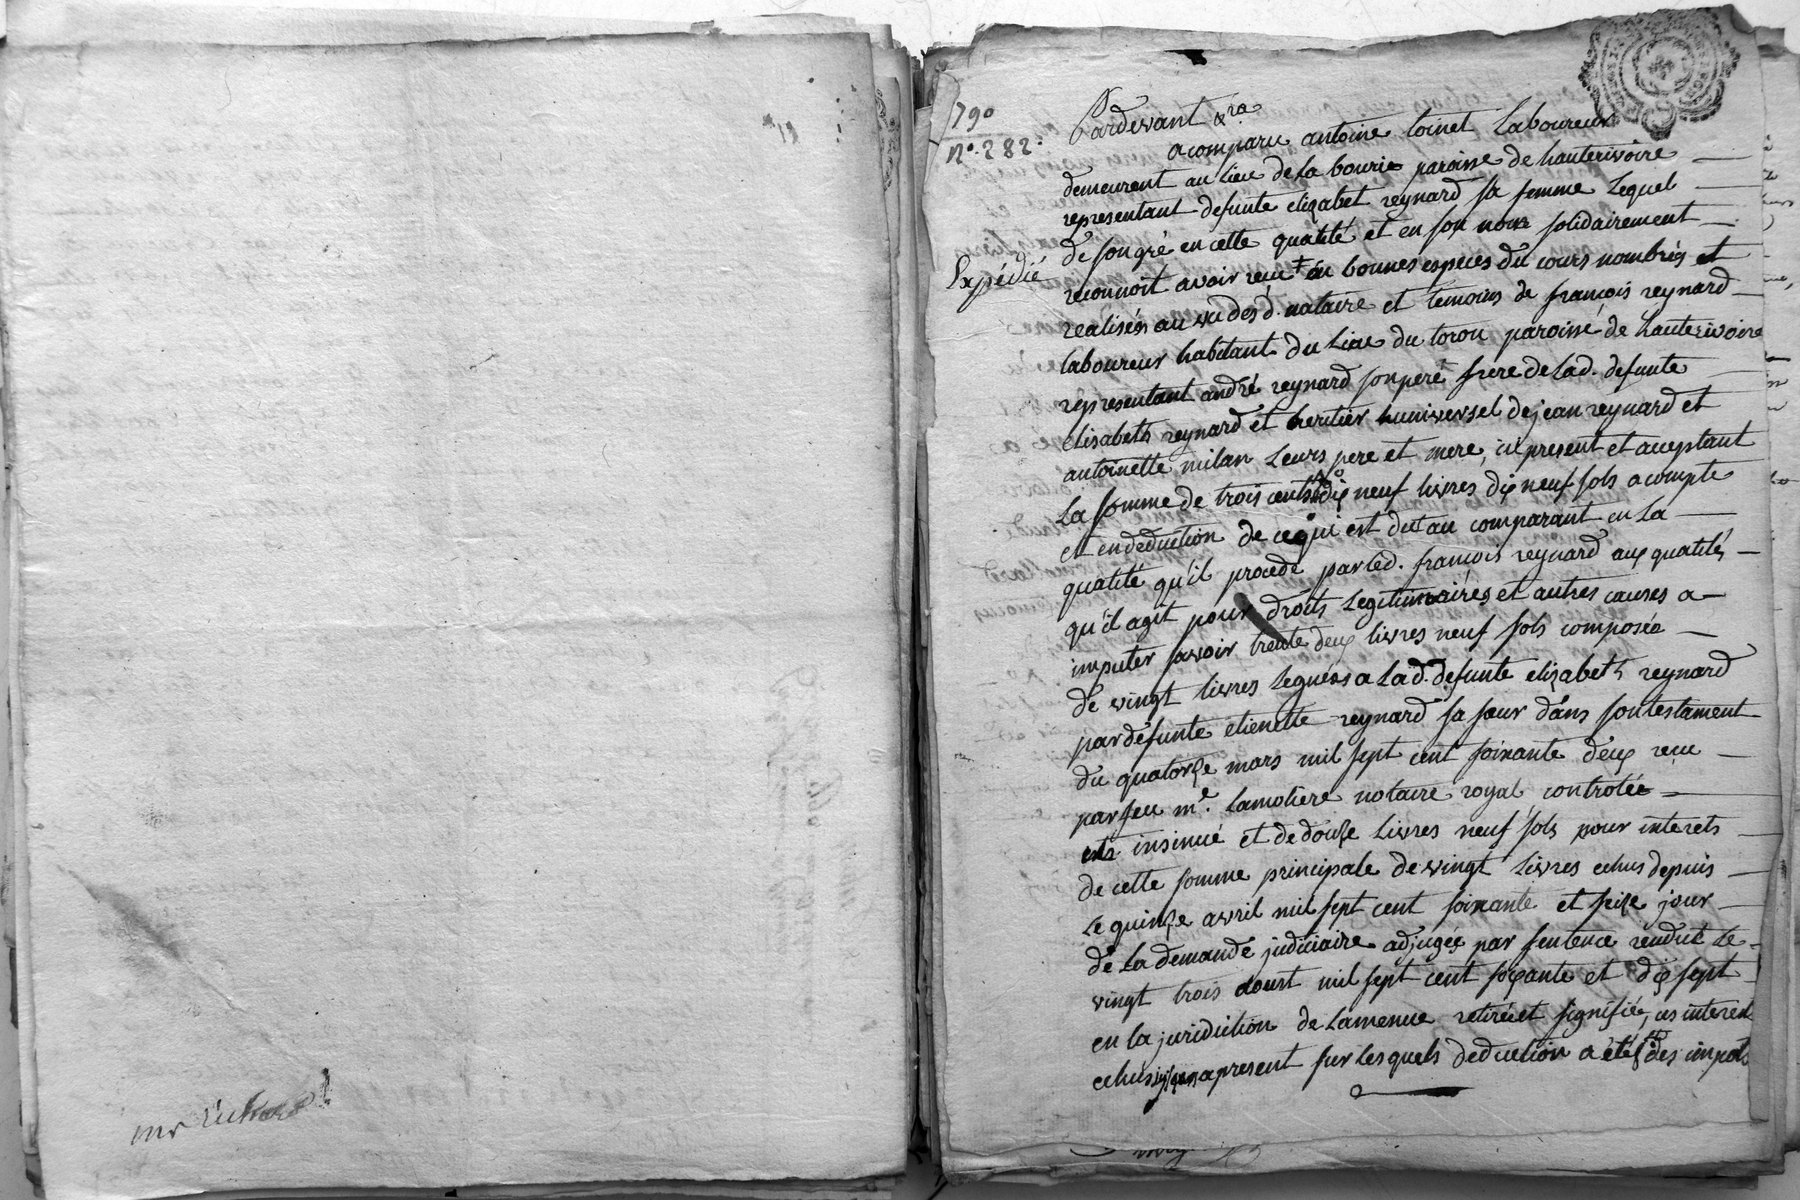 mr
790
n°. 282.
Expédié
Pardevant &ra
a comparu antoine loinet Laboureur
demeurent au Lieu de La bourie paroisse de hauterivoire
representant defunte elizabet reynard sa femme Lequel
de son gré en cette qualité et en son nom solidairement
reconnoit avoir recu en bonnes especes du cours nombrés et
realisés au vu des d. notaire et temoins de francois reynard
laboureur habitant du Lieu du toron paroisse de hauterivoire
representant andré reynard son pere frere de Lad. defunte
elisabeth reynard et heritier huniversel de jean reynard et
antoinette milan Leurs pere et mere, ici present et acceptant
La somme de trois cents dix neuf livres dix neuf sols a compte
et en deduction de ce qui est du au comparant en La
qualité qu'il procede par Led. francois reynard aux qualités
qu'il agit pour droits Legitimaires et autres causes a
imputer savoir trente deux livres neuf sols composée
de vingt livres Leguées a La d. defunte elizabeth reynard
par defunte etienette reynard sa sœur dans son testament
du quatorze mars mil sept cent soixante deux recu
par feu me. Lamotiere notaire royal controlée
et insinué et de douze Livres neuf sols pour interets
de cette somme principale de vingt Livres echus depuis
Le quinze avril mil sept cent soixante et seize jour
de La demande judiciaire adjugée par sentence rendue Le
vingt trois aoust mil sept cent soixante et dix sept
en la juridiction de Lamenue retirée et signifiée, ces interets
echus jusqu'a present sur Lesquels deduction a été fte des impots